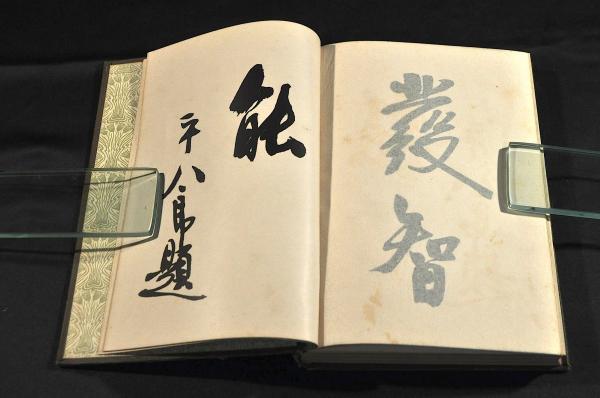 發智
能
平八郎題